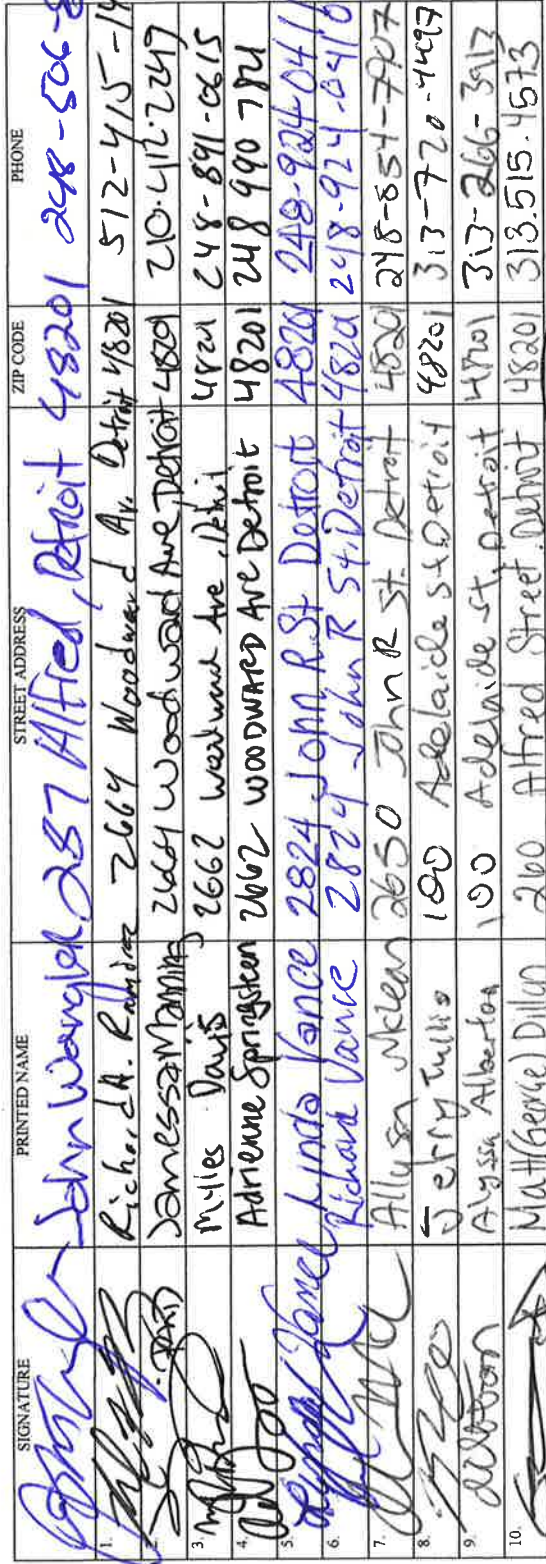 SIGNATURE PRINTED NAME STREET ADDRESS ZIP CODE PHONE
John Wangler 287 Alfred, Detroit 48201 248-506-
1. Richard A. 2664 Woodward Av. Detroit 48201 512-415-14
2. Jamessa Manning 2664 Woodward Ave Detroit 48201 210.412.2249
3. Miles Davis 2662 Woodward Ave, Detroit 48201 248-891-0615
4. Adrienne Springsteen 2662 WOODWARD Ave Detroit 48201 248 990 7821
5. Lynda Vance Linda Vance 2824 John R. St Detroit 48201 248-924-0411
6. Richard Vance 2824 John R St. Detroit 48201 248-924-0410
7. Allyson McLean 2650 John R St. Detroit 48201 248-854-7907
8. Jerry Tullio 100 Adelaide St Detroit 48201 313-720-4497
9. Alyssa Alberton 100 Adelaide St, Detroit 48201 313-266-3913
10. Matt (George) Dillon 260 Alfred Street, Detroit 48201 313.515.4573